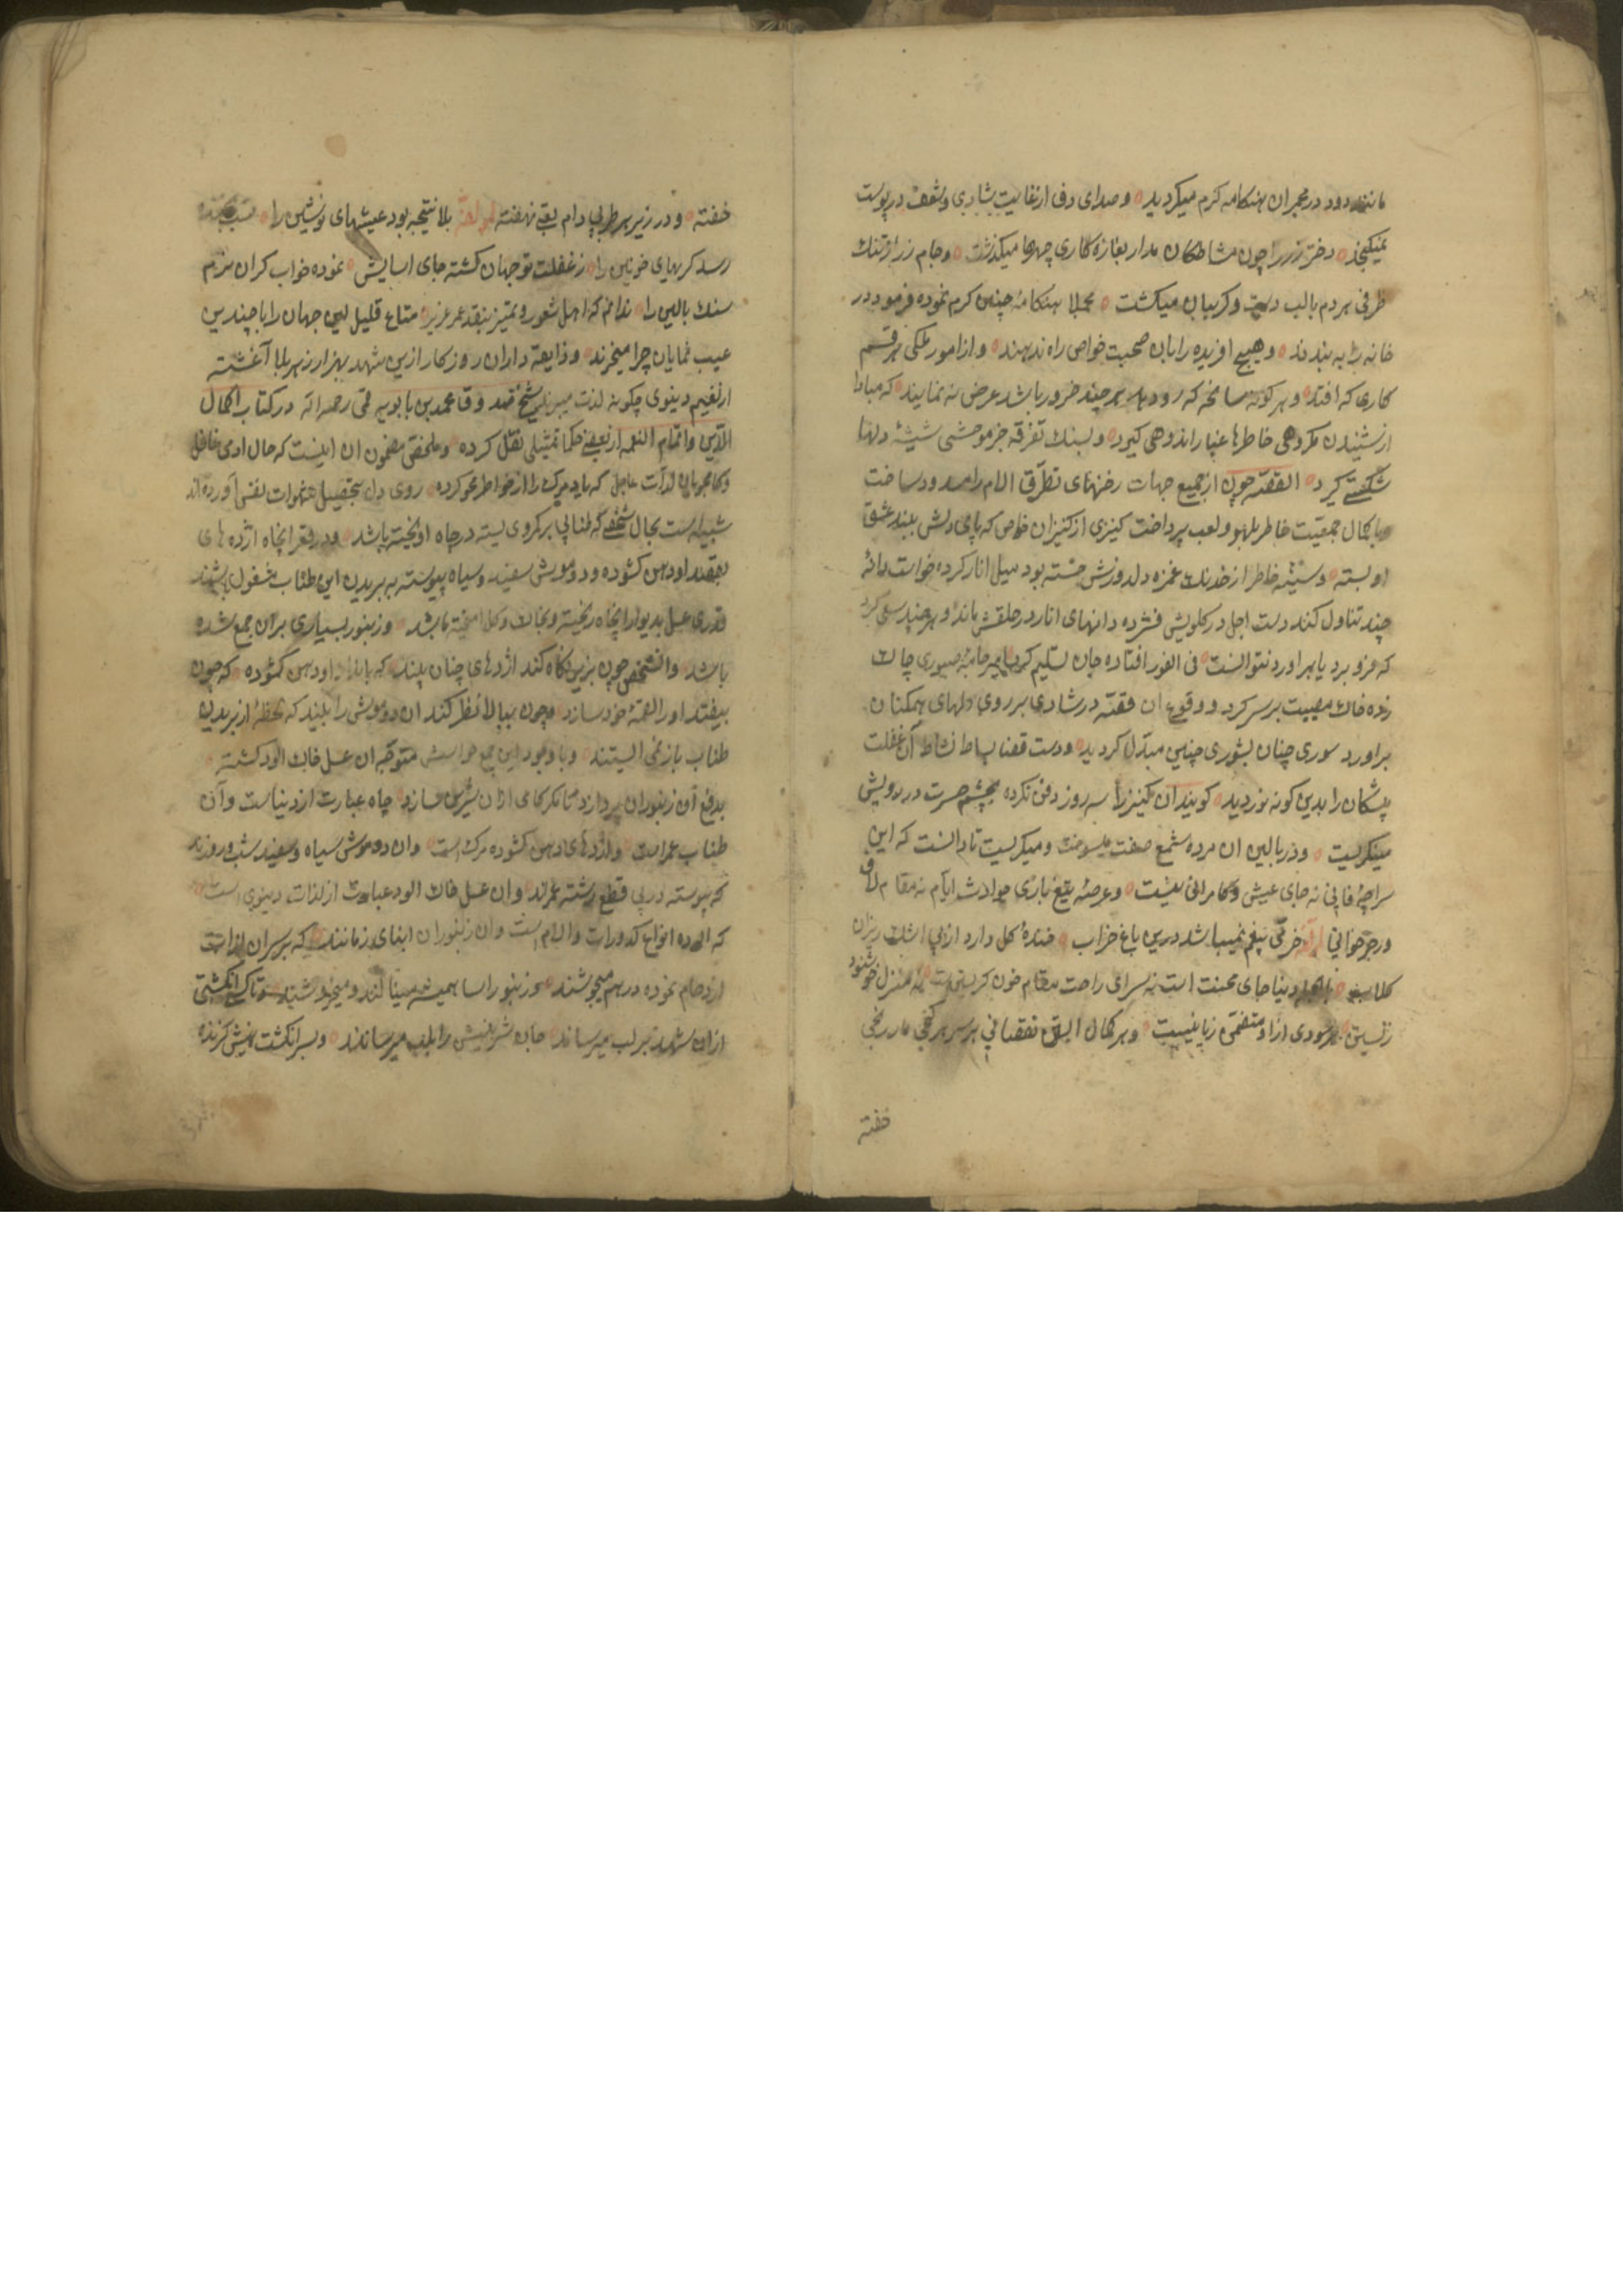 مانند دود در مجمران هنكامه كرم ميكرديد ه و صداى دف از غايت شادى و شعف در پوست
نميكنجد ه دختر زر را چون مشاطكان مدار بغازه كارى چهرها ميكذشت ه و جام زر از تنك
ظرفى هر دم با لب دست و كريبان ميكشت ه مجملا هنكامهٔ چنين كرم نموده فرمود در
خانه را به بندند ه و هيچ افريده را بان صحبت خواص راه ندهند ه و از امور ملكى هر قسم
كارى كه افتد ه و هر كونه سانحه كه رو دهد هر چند ضرور باشد عرض نه نمايند ه كه مبادا
از شنيدن مكروهى خاطرها غبار اندوهى كيرد ه و بسنك تفرقه جزو وحشى شيشهٔ دلها
شكستى كيرد ه القصّه چون از جميع جهات رخنهاى تطرّق الام را مسدود ساخت
با كمال جمعيت خاطر بلهو و لعب پرداخت كنيزى از كنيزان خاص كه پاى دلش ببند عشق
او بسته ه و سينه خاطر از خدنك غمزه دلدوزش خسته بود ميل انار كرده خواست دانهٔ
چند تناول كند دست اجل در كلويش فشرده دانهاى انار در حلقش ماند و هر چند سعى كرد
كه فرو برد يا براورد نتوانست ه فى الفور افتاده جان تسليم كرد امير جامهٔ صبورى چاك
زده خاك مصيبت بر سر كرد و وقوع ان قصّه در شادى بر روى دلهاى همكنان
براورد سورى چنان بشورى چنين مبدّل كرديد ه و دست قضا بساط نشاط آن غفلت
پيشكان را بدين كونه نورديد ه كويند آن كنيز را سه روز دفن نكرده بچشم حسرت در رويش
مينكريست ه و در بالين ان مرده شمع صفت ميسوخت و ميكريست تا دانست كه اين
سراچهٔ فانى نه جاى عيش و كامرانى نيست ه و عرصهٔ تيغ بازى حوادث ايام نه مقام لاف
و رجز خوانى خرمّى بيغم نميباشد درين باغ خراب ه خندهٔ كل دارد از پى اشك ريزان
كلاب ه دنيا جاى محنت است نه سراى راحت مقام خون كريستن است نه منزل خوشنود
زيستن ه هر سودى ازو متضمّن زيانيست ه و هر كمال نقصانى بر سر هر كنجى مار رنجى
خفته
خفته ه و در زير هر طربى دام بقى نهفته بلا نتيجه بود عيشهاى نوشين را ه
رسد كريهاى خونين را ه ز غفلت تو جهان كشته جاى اسايش ه نموده خواب كران نرم
سنك بالين را ه ندانم كه اهل شعور و تميز بنقد عمر عزيز ه متاع قليل اين جهان را با چندين
عيب نمايان چرا ميخرند ه و ذايقه داران روزكار ازين شهد بهزار زهر بلا آغشته
از نعيم دنيوى چكونه لذت ميبرند شيخ محمد بن بابويه قمى رحمه الله در كتاب اكمال
الدّين و اتمام النعمه از بعضى حكما تمثيلى نقل كرده ه و ملخص مضمون ان اينست كه حال ادمى غافل
و كامجويان لذّات عاجل كه ياد مرك را از خواطر محو كرده ه روى دل بتحصيل شهوات نفس آورده اند
شبيه است بحال شخصى كه طنابى بر كمر وى بسته در چاه اويخته باشد ه و در قعر انچاه اژدهاى
بقصد او دهن كشوده و دو موش سفيد و سياه پيوسته به بريدن اين طناب مشغول باشند
قدرى عسل بديوار انچاه ريخته و بخاك و كل اميخته باشد ه و زنبور بسيارى بران جمع شده
باشد ه و انشخص چون بزير نكاه كند اژدهاى چنان بيند كه باندازه او دهن كشوده ه كه چون
بيفتد او را لقمهٔ خود سازد ه و چون ببالا نظر كند ان دو موش را بيند كه لحظهٔ از بريدن
طناب باز نمى ايستند ه و با وجود اين همه حواسش متوجّه ان عسل خاك الود كشته ه
بدفع آن زنبوران پردازد تا مكر كامى ازان شيرين سازد ه چاه عبارت از دنياست و آن
طناب عمر است ه و اژدهاى دهن كشوده مرك است ه و ان دو موش سياه و سفيد شب و روزند
كه پيوسته در پى قطع رشته عمرند ه و ان عسل خاك الود عبارت از لذات دنيوى است
كه الوده انواع كدورات و الام است و ان زنبوران ابناى زمانند ه كه بر سر ان لذات
ازدحام نموده در هم ميجوشند ه و زنبور اسا هميشه مينالند و ميخروشند ه تا كسى انكشتى
ازان شهد بر لب ميرساند ه جان شيرينش را بلب ميرسانند ه و بسر انكشت نيش كزنده